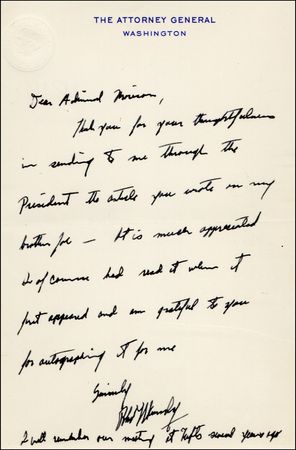 THE ATTORNEY GENERAL
WASHINGTON
Dear Admiral Morison,
Thank you for your thoughtfulness
in sending to me through the
President the article you wrote on my
brother Joe — It is much appreciated
I of course had read it when it
first appeared and am grateful to you
for autographing it for me
Sincerely
I well remember our meeting at Tufts several years ago